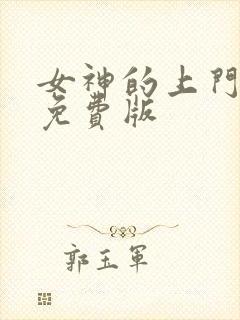 女神的上門
免費版
郭玉軍